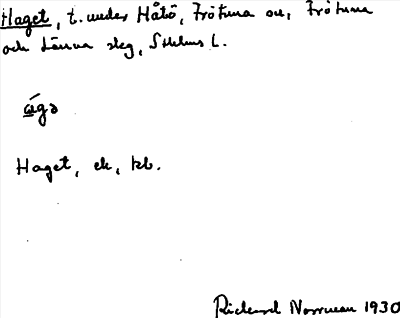 Haget, t. under Håtö, Frötuna sn, Frötuna
och Länna skg, Sthlms l.
Haget, ek, kb.
Rickard Norrman 1930